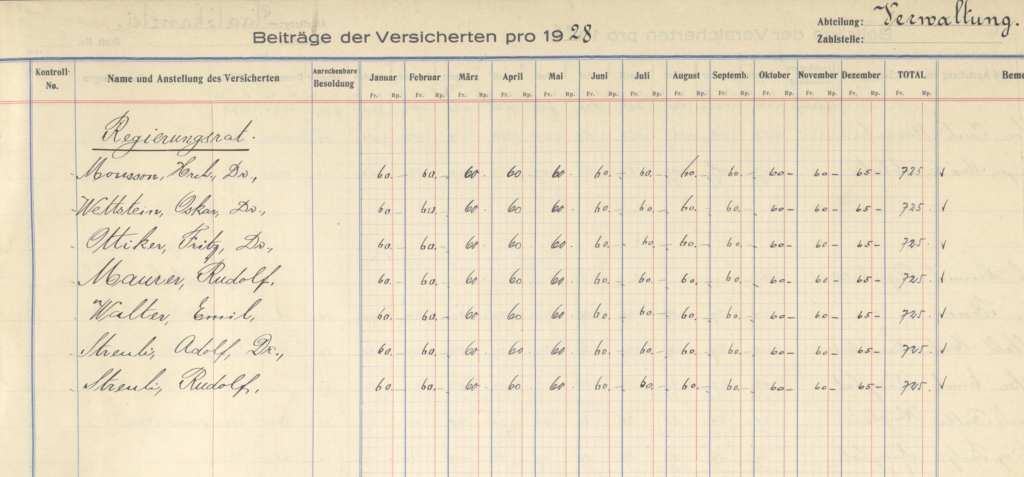 Abteilung: Verwaltung.
Beiträge der Versicherten pro 1928
Zahlstelle:
Kontroll-No. Name und Anstellung des Versicherten Anrechenbare Besoldung Januar Februar März April Mai Juni Juli August Septemb. Oktober November Dezember TOTAL
Fr. Rp. Fr. Rp. Fr. Rp. Fr. Rp. Fr. Rp. Fr. Rp. Fr. Rp. Fr. Rp. Fr. Rp. Fr. Rp. Fr. Rp. Fr. Rp. Fr. Rp.
Regierungsrat.
Mousson, Hrch., Dr., 60.– 60.– 60.– 60 60.– 60.– 60.– 60.– 60.– 60– 60– 65– 725 ✓
Wettstein, Oskar, Dr., 60.– 60.– 60.– 60 60.– 60.– 60.– 60.– 60.– 60– 60– 65– 725. ✓
Ottiker, Fritz, Dr., 60.– 60.– 60.– 60 60.– 60.– 60.– 60.– 60.– 60– 60– 65– 725. ✓
Maurer, Rudolf. 60.– 60.– 60.– 60 60.– 60.– 60.– 60.– 60.– 60– 60– 65– 725. ✓
Walter, Emil, 60.– 60.– 60.– 60 60.– 60.– 60.– 60.– 60.– 60– 60– 65– 725. ✓
Streuli, Adolf, Dr., 60.– 60.– 60.– 60 60.– 60.– 60.– 60.– 60.– 60– 60– 65– 725. ✓
Streuli, Rudolf. 60.– 60.– 60.– 60 60.– 60.– 60.– 60.– 60.– 60– 60– 65– 725. ✓